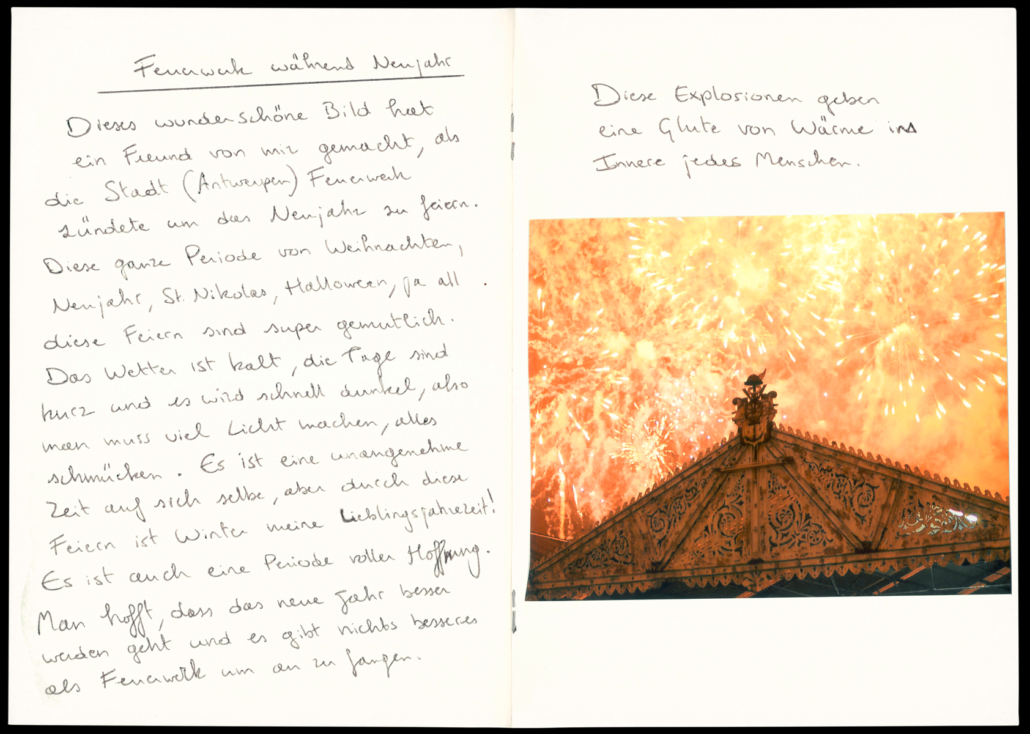 Feuerwerk während Neujahr
Dieses wunderschöne Bild hat
ein Freund von mir gemacht, als
die Stadt (Antwerpen) Feuerwerk
zündete um das Neujahr zu feiern.
Diese ganze Periode von Weihnachten,
Neujahr, St. Nikolas, Halloween, ja all
diese Feiern sind super gemutlich.
Das Wetter ist kalt, die Tage sind
kurz und es wird schnell dunkel, also
man muss viel Licht machen, alles
schmücken. Es ist eine unangenehme
Zeit auf sich selbe, aber durch diese
Feiern ist Winter meine Lieblingsjahrezeit!
Es ist auch eine Periode voller Hoffnung.
Man hofft, dass das neue Jahr besser
werden geht und es gibt nichts besseres
als Feuerwerk um an zu fangen.
Diese Explosionen geben
eine Glute von Wärme ins
Innere jedes Menschen.